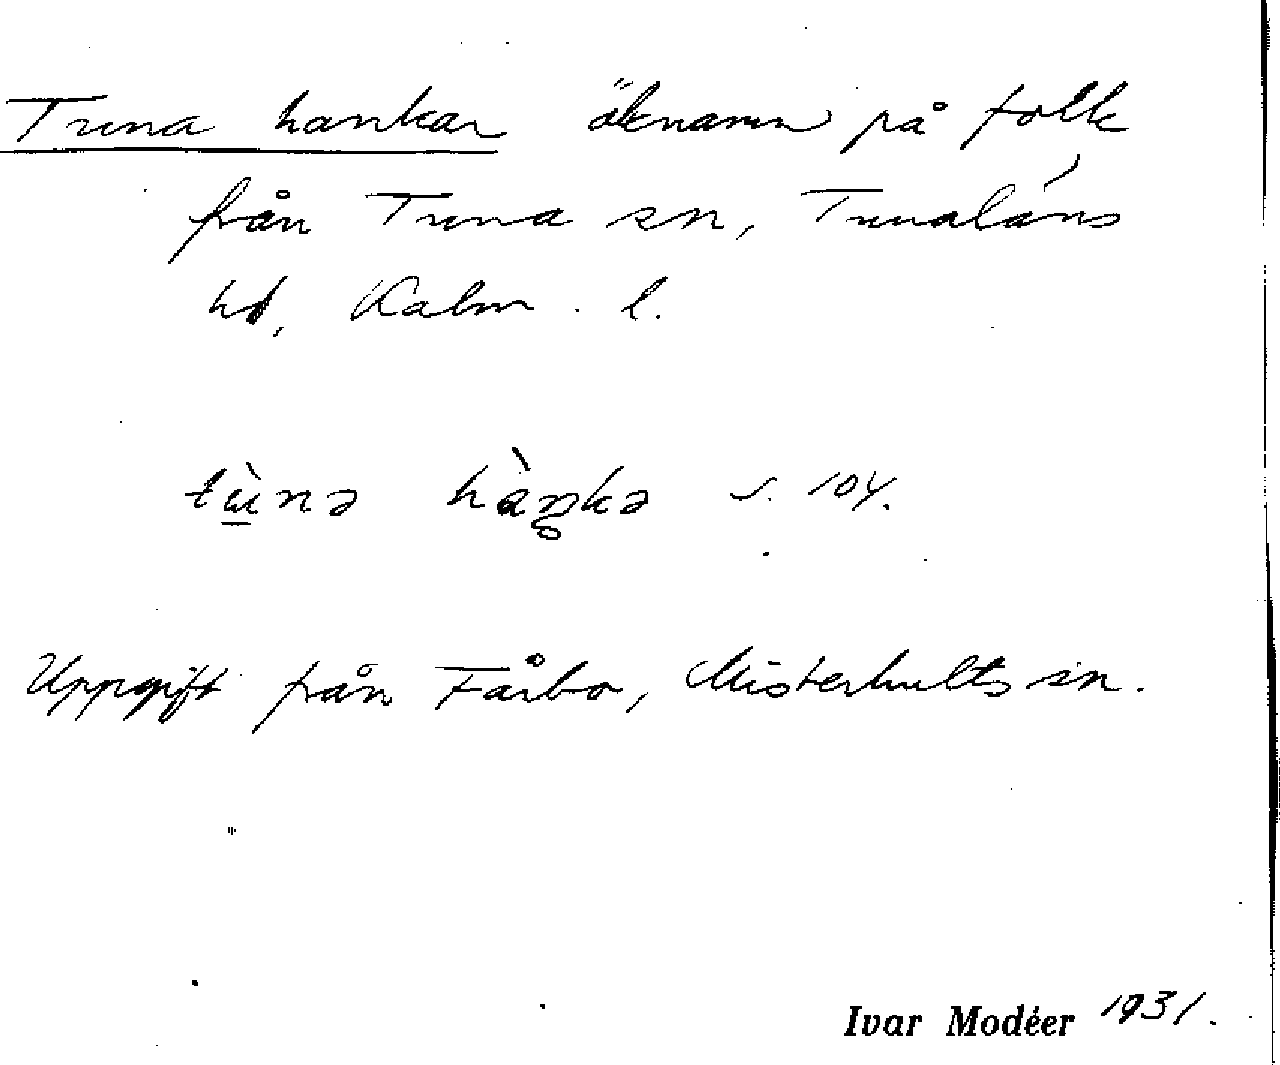 Tuna hankar öknamn på folk
från Tuna sn, Tunaläns
hd, Kalm. l.
tɯ̠̀nə hàŋkə s. 104.
Uppgift från Fårbo, Misterhults sn.
Ivar Modéer 1931.